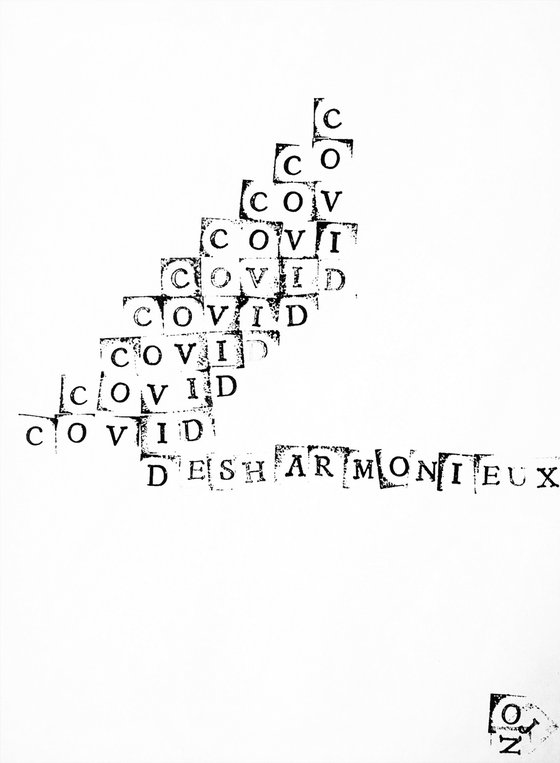 C
CO
COV
COVI
COVID
COVID
COVID
COVID
COVID
DESHARMONIEUX
OJ
N